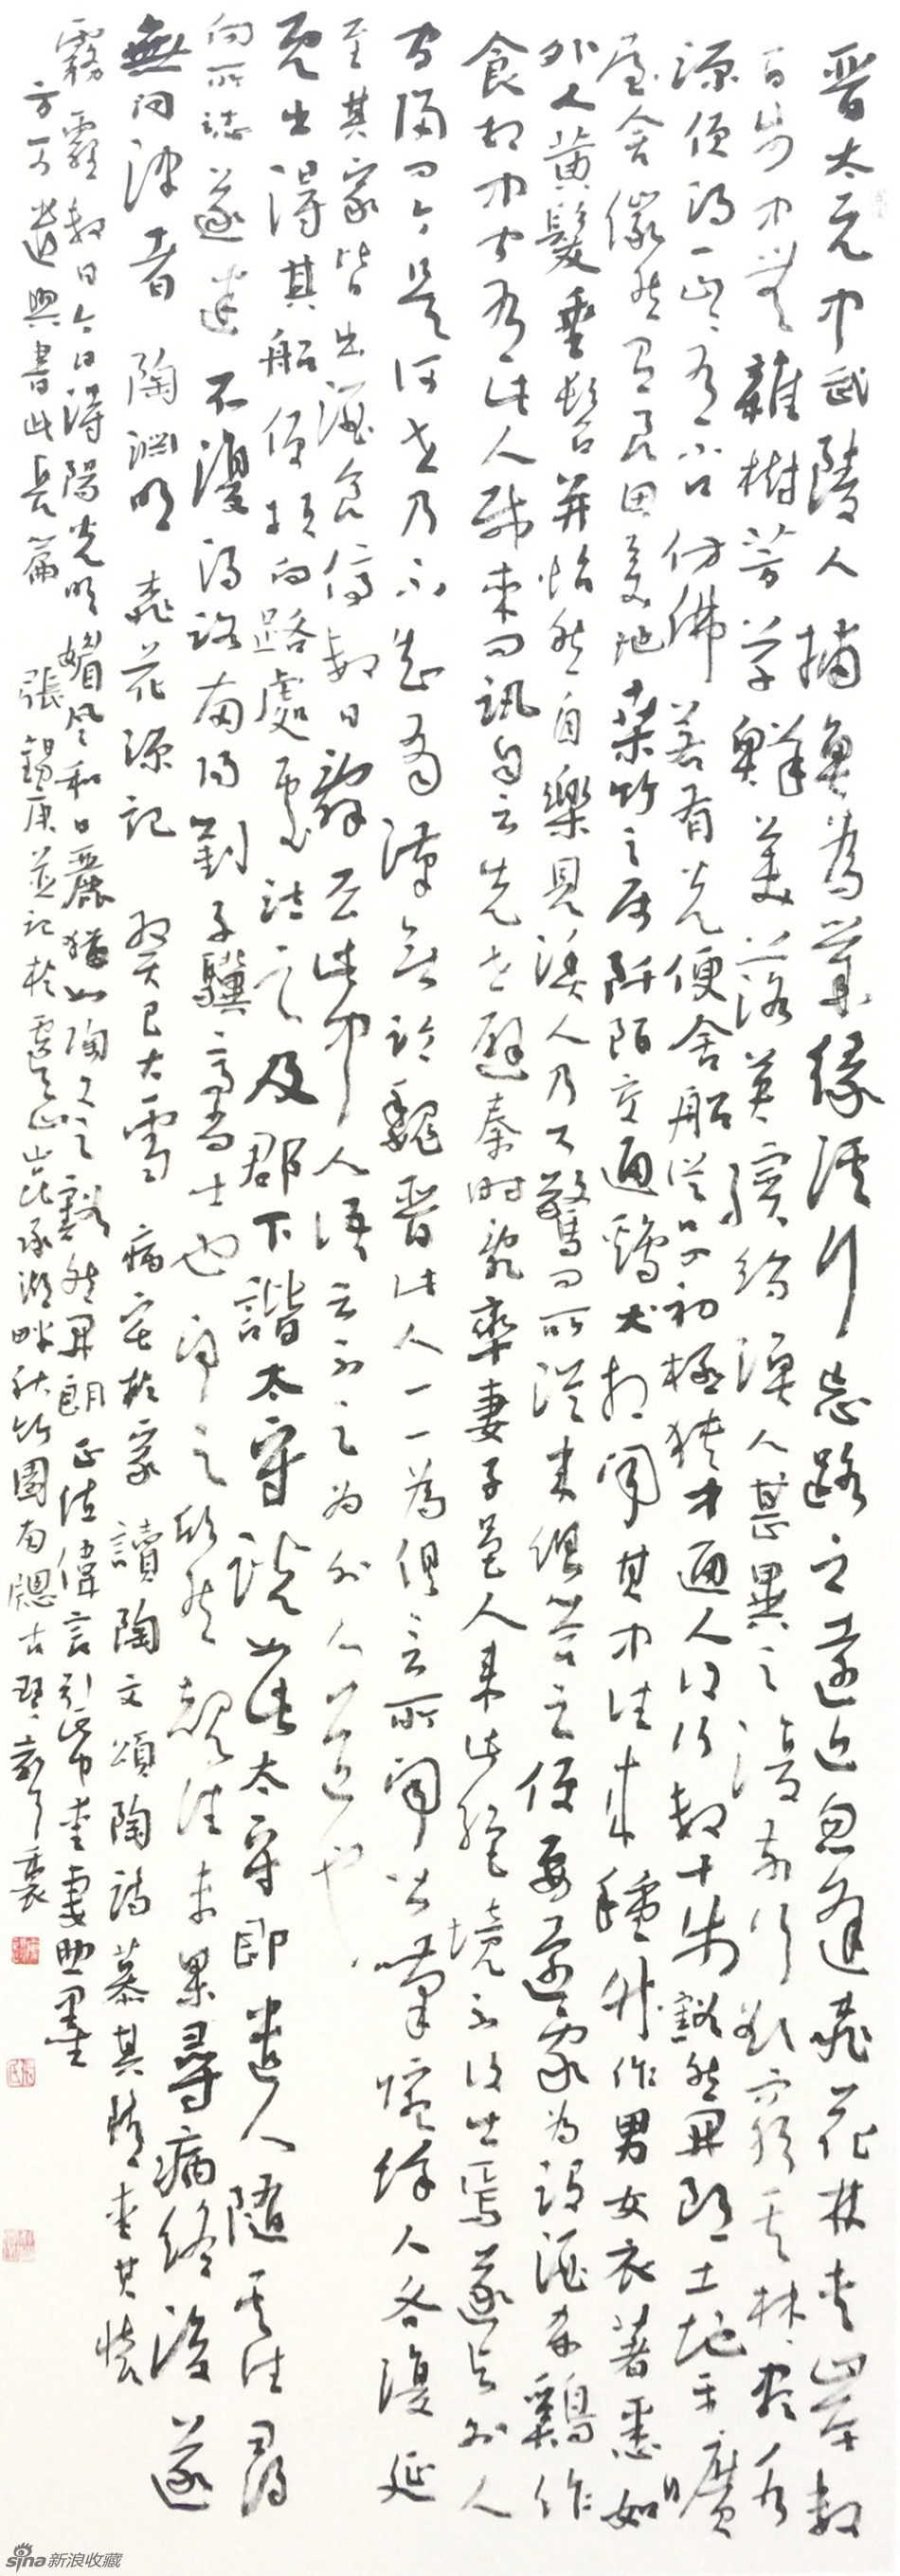 晋太元中武陵人捕魚為業緣溪行忘路之遠近忽逢桃花林夹岸数
百步中無雜樹芳草鮮美落英繽紛漁人甚異之復前行欲窮其林林盡水
源便得一山山有小口仿佛若有光便舍船從口入初極狹才通人復行数十步豁然開朗土地平曠
屋舍儼然有良田美池桑竹之屬阡陌交通雞犬相聞其中往来種作男女衣著悉如
外人黄髮垂髫并怡然自樂見漁人乃大驚問所從来俱答之便要還家為設酒殺雞作
食村中聞有此人咸来問訊自云先世避秦時亂率妻子邑人来此絕境不復出焉遂与外人
間隔問今是何世乃不知有漢無論魏晋此人一一為俱言所聞皆嘆惋餘人各復延
至其家皆出酒食停數日辭去此中人語云不足為外人道也
既出得其船便扶向路處處誌之及郡下詣太守說如此太守即遣人隨其往尋
向所誌遂迷不復得路南陽劉子驥高尚士也聞之欣然規往未果尋病終後遂
無問津者 陶淵明 桃花源記 癸巳大雪 病宅於家 讀陶文頌陶詩慕其情 其懷
霧霾數日今日得陽光明媚風和日麗猶如陶文之豁然開朗 妻 墨
方可遣興書此長篇 張錫庚並記於虞山 琢湖畔 竹園南窗古琴
sina新浪收藏